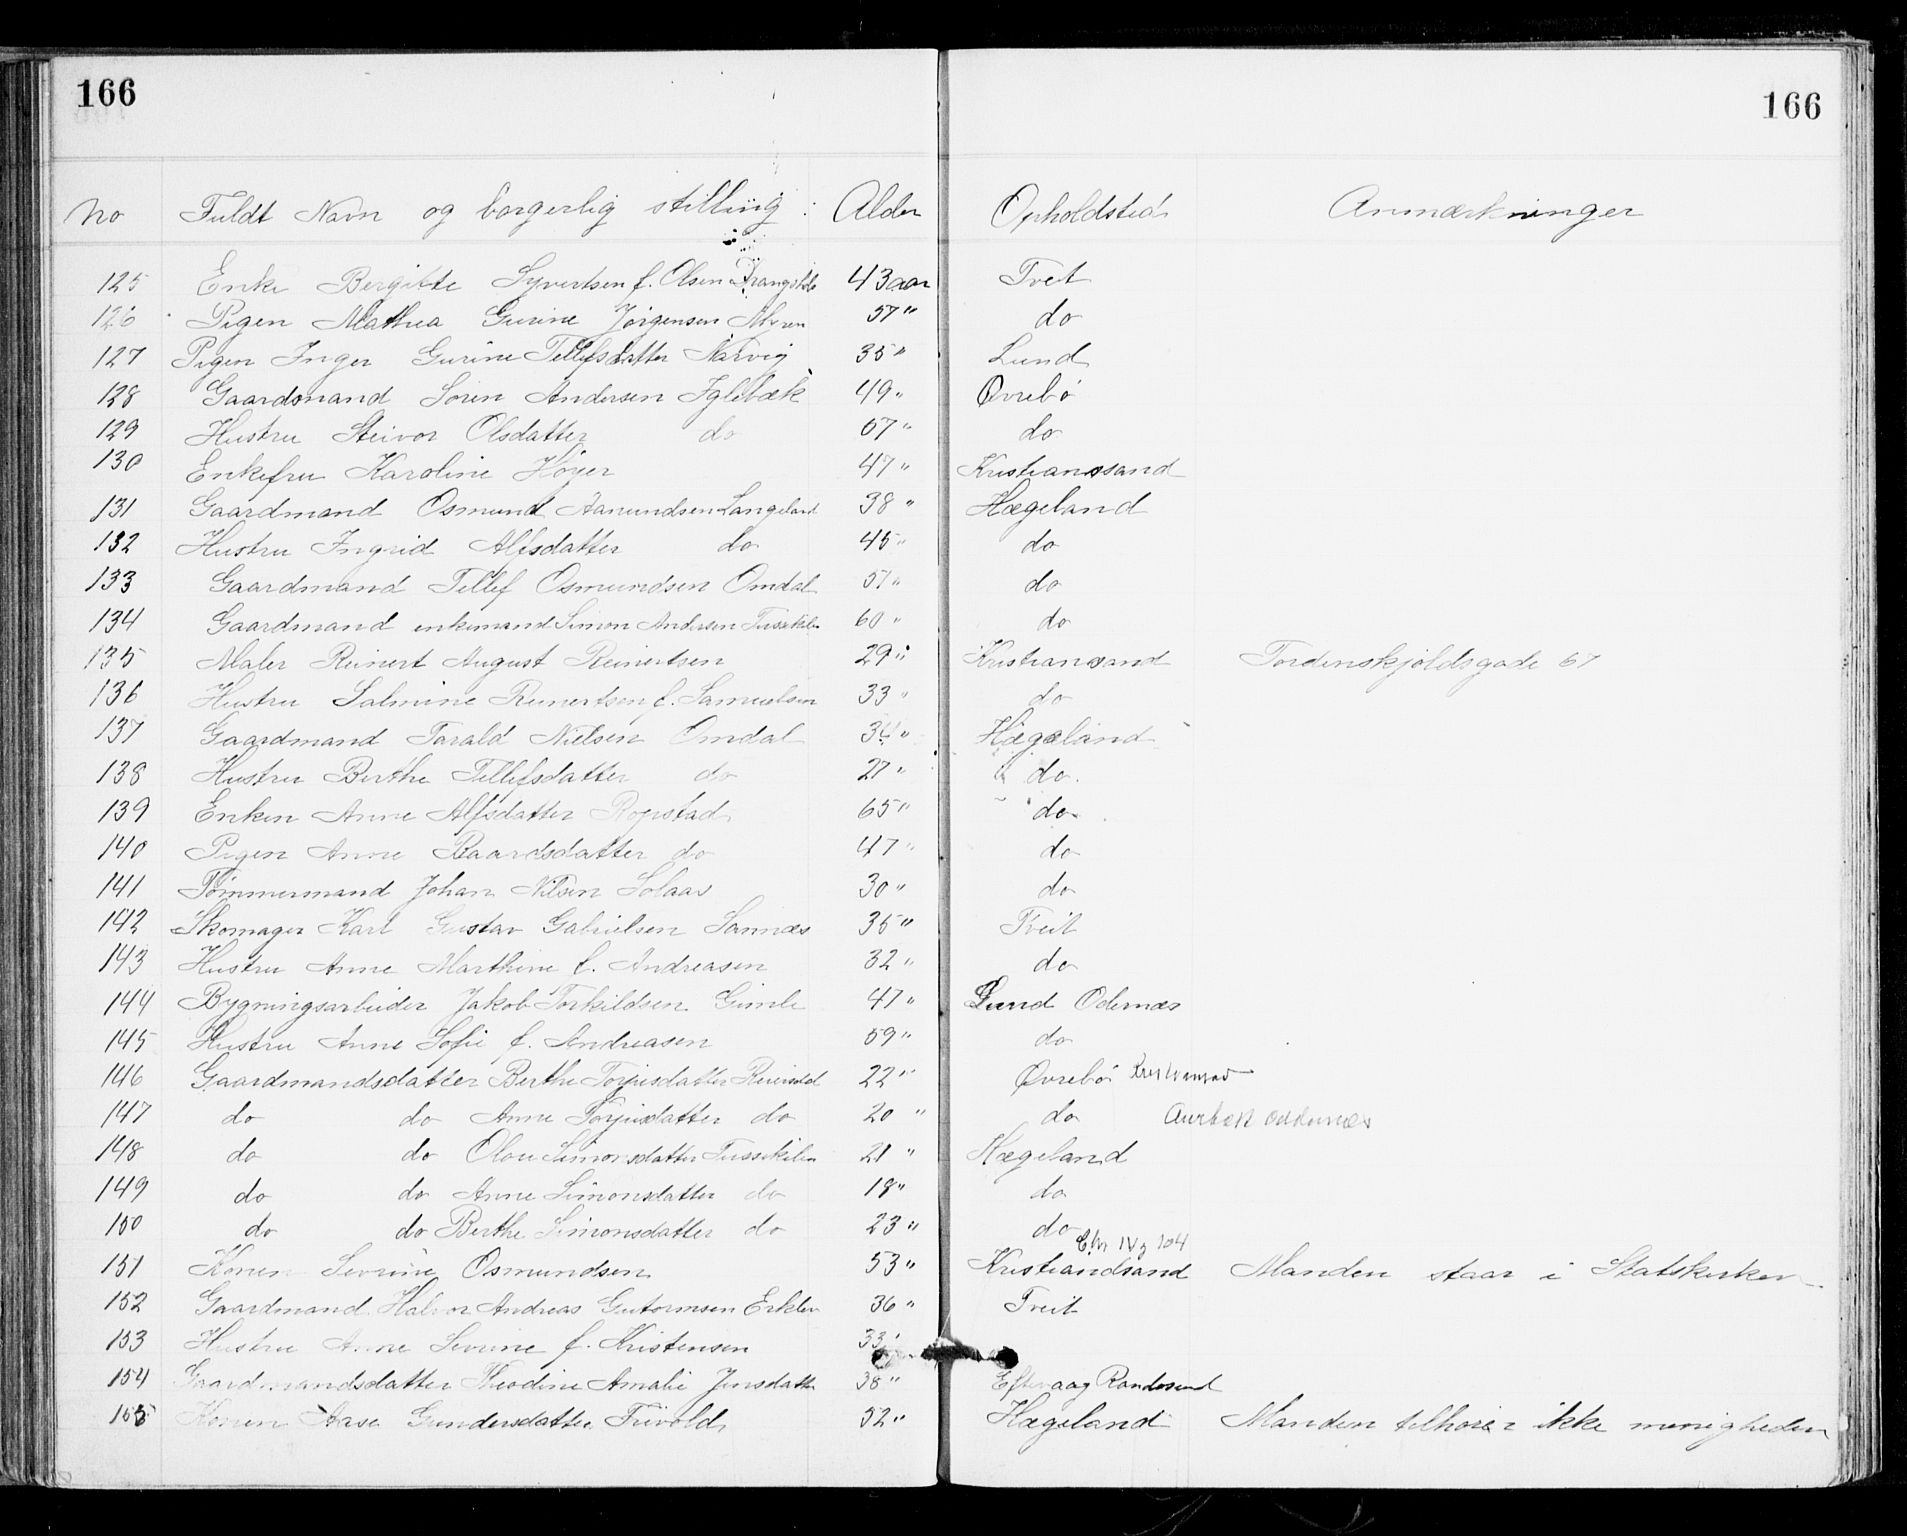 166 166
No Fuldt Navn og borgerlig stilling : Alder Opholdsted Anmærkninger
125 Enke Bergitte Syvertsen f. Olsen 43 aar Tvet
126 Pigen Mathea Gurine Jørgensen Myren 57 " do
127 Pigen Inger Gurine Tellefsdatter Narvig 35 " Lund
128 Gaardmand Søren Andersen Iglebæk 49 " Øvrebø
129 Hustru Steivor Olsdatter do 67 " do
130 Enkefru Karoline Høyer 47 " Kristianssand
131 Gaardmand Osmund Aanundsen Langeland 38 " Hægeland
132 Hustru Ingrid Alfsdatter do 45 " do
133 Gaardmand Tellef Osmundsen Omdal 57 " do
134 Gaardmand enkemand Simon Andersen 60 " do
135 Maler Reinert August Reinertsen 29 " Kristiansand Tordenskjoldsgade 67
136 Hustru Salmine Reinertsen f. Samuelsen 33 " do
137 Gaardmand Tarald Nielsen Omdal 34 " Hægeland
138 Hustru Berthe Tellefsdatter do 27 " do
139 Enken Anne Alfsdatter Ropstad 65 " do
140 Pigen Anne Baardsdatter do 47 " do
141 Tømmermand Johan Nilsen Solaas 30 " do
142 Skomager Karl Gustav Gabrielsen Sannæs 35 " Tveit
143 Hustru Anne Marthine f. Andreasen 32 " do
144 Bygningsarbeider Jakob Torkildsen Gimle 47 " Lund Odernæs
145 Hustru Anne Sofie f. Andreasen 59 " do
146 Gaardmandsdatter Berthe Torjusdatter 22 " Øvrebø
147 do do Anne Torjusdatter do 20 " do oddernæs
148 do do Olou Simonsdatter 21 " Hægeland
149 do do Anne Simonsdatter do 18 " do
150 do do Berthe Simonsdatter do 23 " do
151 Konen Severine Osmundsen 53 " Kristiandsand Manden staar i Statskirken
152 Gaardmand Halvor Andreas Gutormsen Erklev 36 " Tveit
153 Hustru Anne Severine f. Kristensen 33
154 Gaardmandsdatter Theodine Amalie Jensdatter 38 " Eftevaag Randesund
155 Konen Aase Gundersdatter Frivold 52 " Hægeland Manden tilhører ikke menigheden